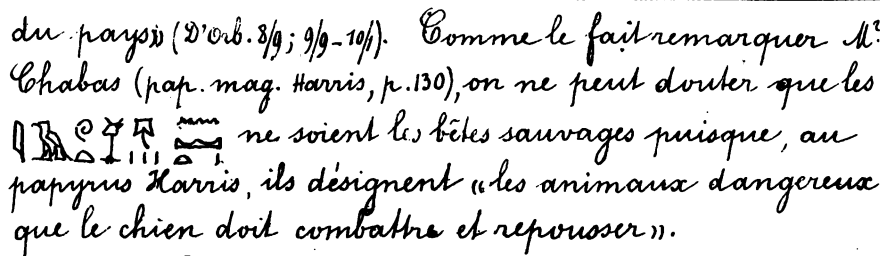 du pays» (D'Orb. 8/9; 9/9-10/1). Comme le fait remarquer Mr
Chabas (pap. mag. Harris, p.130), on ne peut douter que les
ne soient les bêtes sauvages puisque, au
papyrus Harris, ils désignent «les animaux dangereux
que le chien doit combattre et repousser».